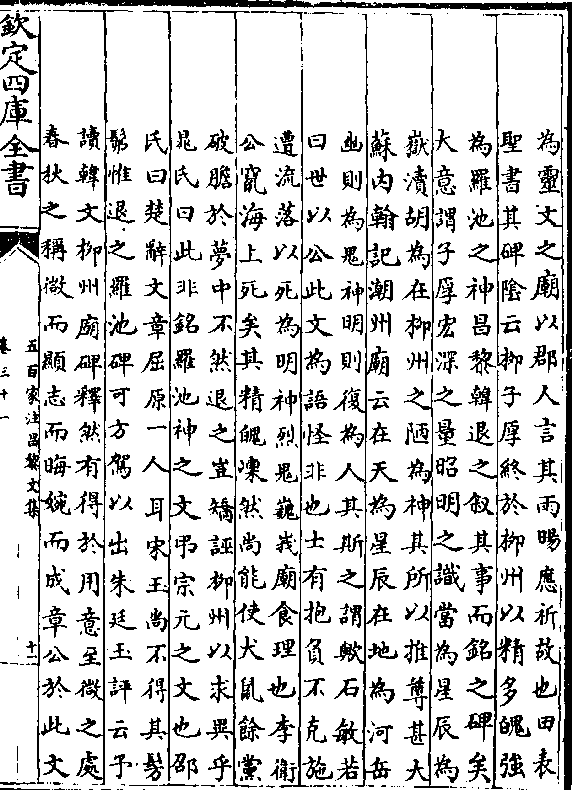 為靈文之廟以郡人言其雨暘應祈故也田表
聖書其碑陰云柳子厚終於柳州以精多魄強
為羅池之神昌黎韓退之叙其事而銘之碑矣
大意謂子厚宏深之量昭明之識當為星辰為
嶽瀆胡為在柳州之陋為神其所以推尊甚大
蘇内翰記潮州廟云在天為星辰在地為河岳
幽則為鬼神明則復為人其斯之謂歟石敏若
曰世以公此文為語怪非也士有抱負不克施
遭流落以死為明神烈鬼巍峩廟食理也李衛
公竄海上死矣其精魄凛然尚能使犬鼠餘黨
破膽於夢中不然退之豈矯誣柳州以求異乎
晁氏曰此非銘羅池神之文弔宗元之文也邵
氏曰楚辭文章屈原一人耳宋玉尚不得其髣
髴惟退之羅池碑可方駕以出朱廷玉評云予
讀韓文柳州廟碑釋然有得於用意至微之處
春秋之稱微而顯志而晦婉而成章公於此文
欽定四庫全書
五百家注昌黎文集
卷三十一
十一